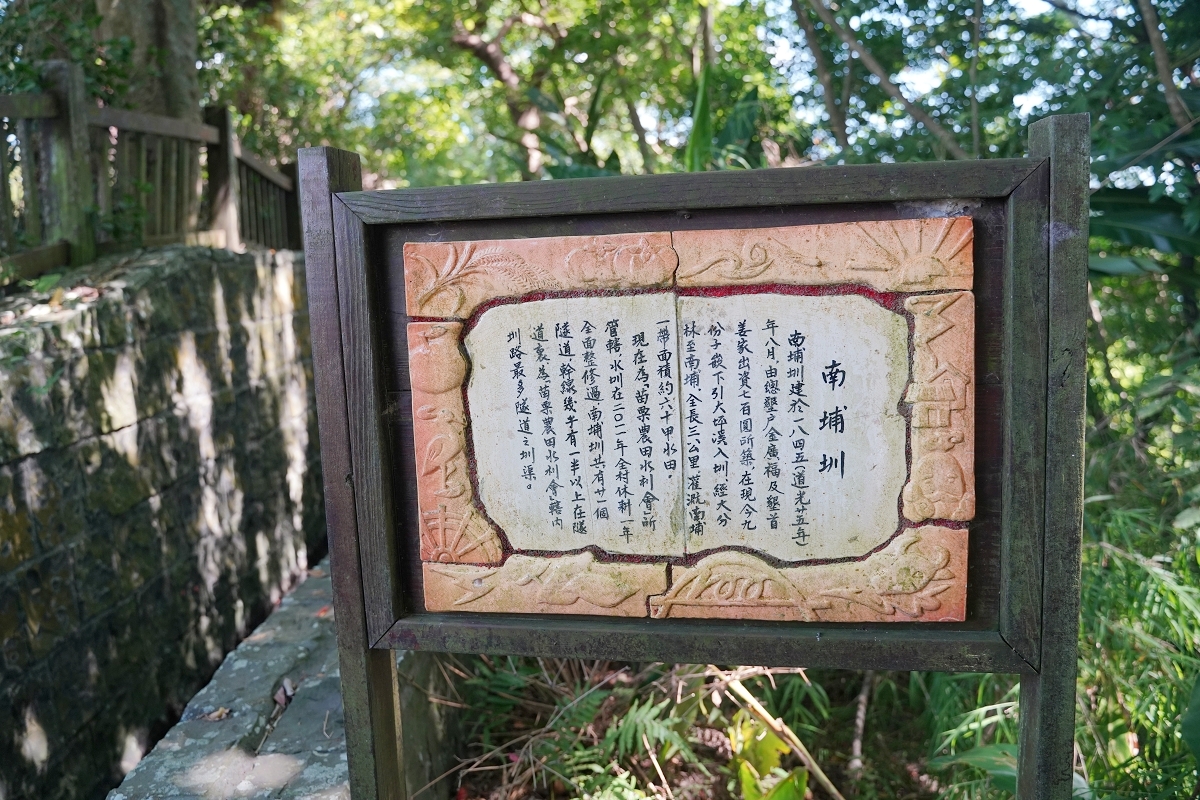 南埔圳
南埔圳建於一八四五(道光廿五年)
年八月,由總墾戶金廣福及墾首
姜家出資七百圓所築,在現今九
份子崁下引大坪溪入圳,經大分
林至南埔,全長三公里,灌溉南埔
一帶面積約六十甲水田。
現在為「苗栗農田水利會」所
管轄,水圳在二〇一一年全村休耕一年
全面整修過,南埔圳共有廿一個
隧道,幹線幾乎有一半以上在隧
道裏,為「苗栗農田水利會」轄內
圳路最多隧道之圳渠。